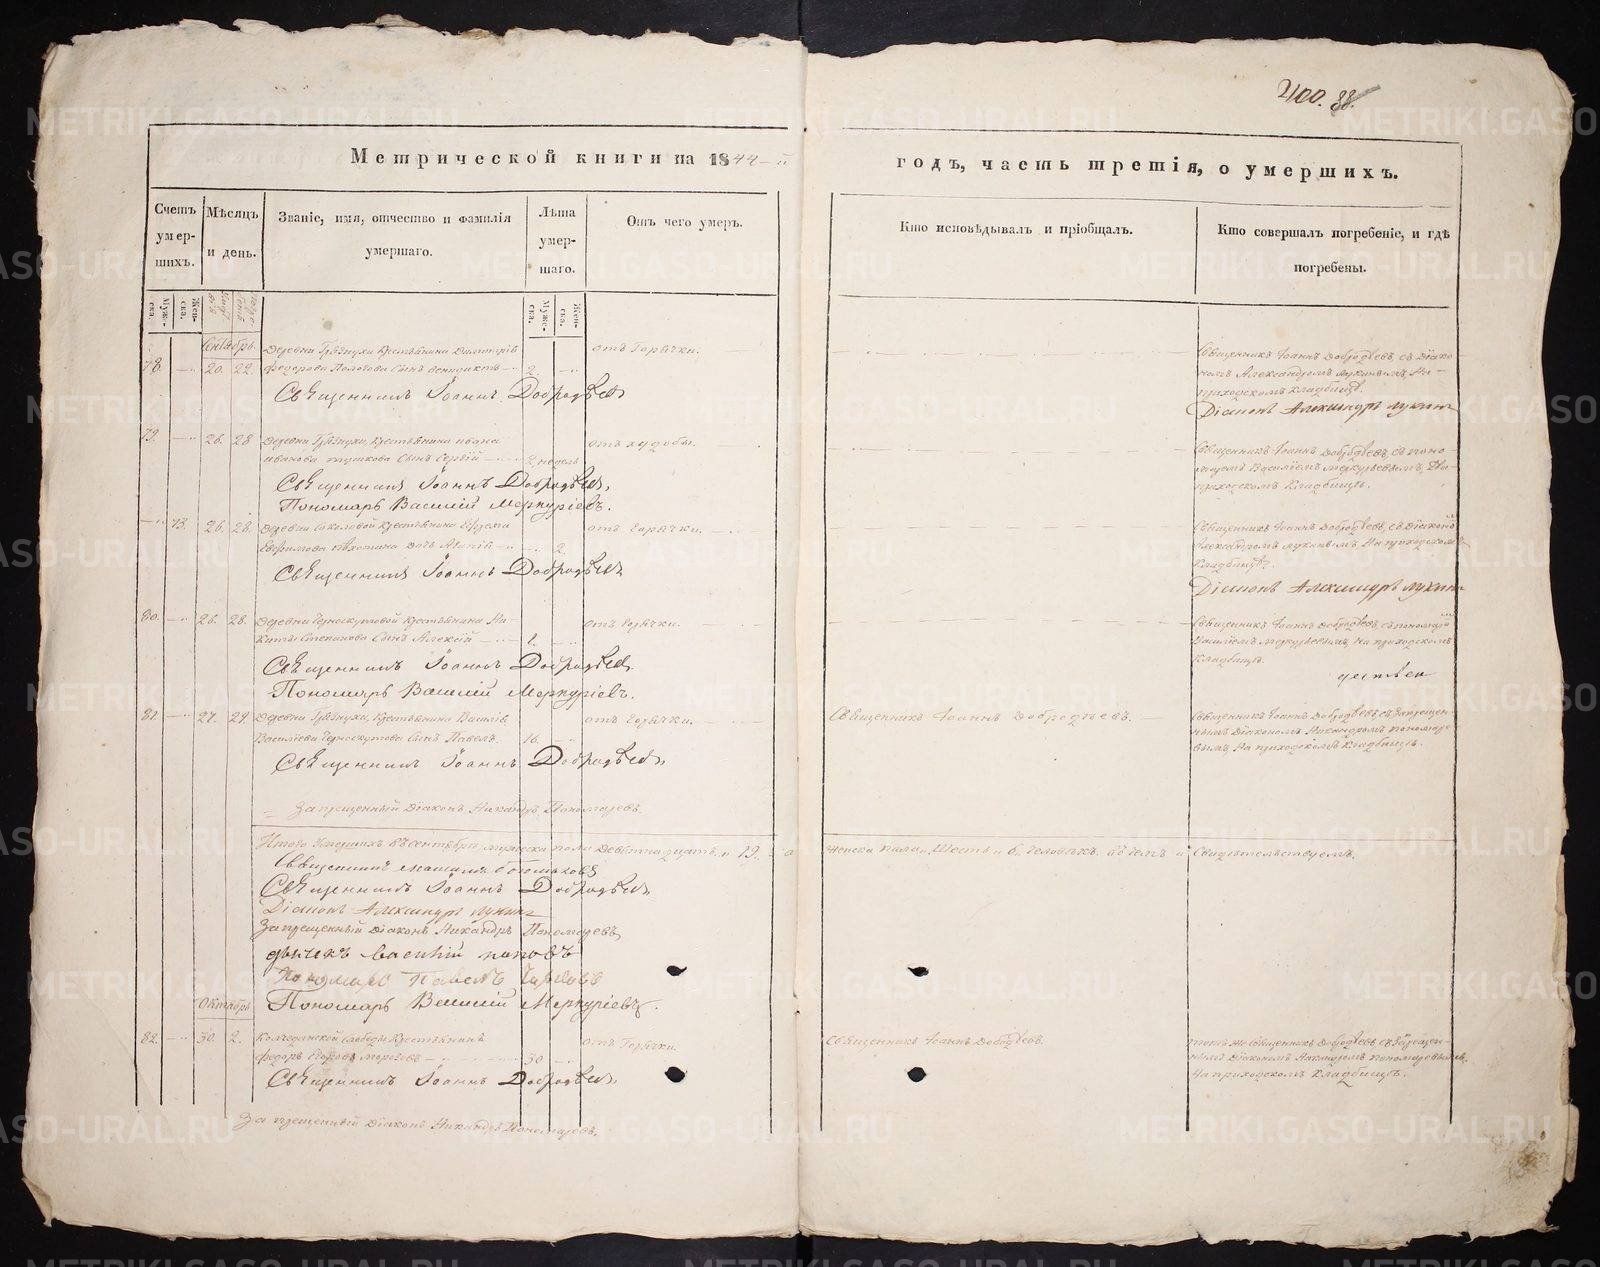 2100. 88.
Метрической книги на 1844-й
годъ, часть третія, о умершихъ.
Счетъ умер-шихъ.
Мѣсяцъ и день.
Званіе, имя, отчество и фамилія умершаго.
Лѣта умер-шаго.
Отъ чего умеръ.
Кто исповѣдывалъ и пріобщалъ.
Кто совершалъ погребеніе, и гдѣ погребены.
Муже-ска.
Жен-ска.
Муже-ска.
Жен-ска.
Сентябрь.
78. 20. 22. Деревни Грязнухи Крестьянина Димитрія
Федорова сынъ Венедиктъ 2. отъ Горячки.
Священникъ Іоаннъ Добродѣевъ съ Діако-
номъ Александромъ Лукинымъ, На-
приходскомъ кладбищѣ.
Священникъ Іоаннъ Добродѣевъ
Діаконъ Александръ Лукинъ
79. 26. 28 Деревни Грязнухи, Крестьянина Ивана
Иванова сынъ Сергій 2 недель отъ худобы.
Священникъ Іоаннъ Добродѣевъ, съ поно-
маремъ Василіемъ Меркурьевымъ, На-
приходскомъ Кладбищѣ.
Священникъ Іоаннъ Добродѣевъ,
Пономарь Василій Меркуріевъ.
73. 26. 28. Деревни Соколовой Крестьянина
Ефимова дочь 2. отъ Горячки.
Священникъ Іоаннъ Добродѣевъ, съ Діакономъ
Александромъ Лукинымъ, На приходскомъ
Кладбищѣ.
Священникъ Іоаннъ Добродѣевъ
Діаконъ Александръ Лукинъ
80. 26. 28. Деревни Черноскутовой Крестьянина Ни-
киты сынъ Алексѣй 1. отъ Горячки.
Священникъ Іоаннъ Добродѣевъ, съ пономаремъ
Василіемъ Меркурьевымъ, на приходскомъ
Кладбищѣ.
Священникъ Іоаннъ Добродѣевъ.
Пономарь Василій Меркуріевъ.
81. 27. 29. Деревни Грязнухи, Крестьянина Василія
Васильева Черноскутова сынъ Павелъ. 16. отъ Горячки.
Священникъ Іоаннъ Добродѣевъ.
Священникъ Іоаннъ Добродѣевъ, съ Запрещен-
нымъ Діакономъ Никандромъ Пономаре-
вымъ, На приходскомъ Кладбищѣ.
Священникъ Іоаннъ Добродѣевъ
Запрещенный Діаконъ Никандръ Пономаревъ.
Итого Умершихъ въ Сентябрѣ, мужеска пола Девятнадцать, 19. а
женска пола, Шесть, 6, человѣкъ. въ чемъ и Свидѣтельствуемъ.
Священникъ
Священникъ Іоаннъ Добродѣевъ
Діаконъ Александръ Лукинъ
Запрещенный Діаконъ Никандръ Пономаревъ
дьячекъ Василій Поповъ
Пономарь Павелъ
Пономарь Василій Меркуріевъ.
Октябрь
82. 30. 2. Колчеданской слободы Крестьянинъ
Федоръ 30 отъ Горячки.
Священникъ Іоаннъ Добродѣевъ.
тотъ же Священникъ Добродѣевъ, съ Запрещен-
нымъ Діакономъ Никандромъ Пономаревымъ,
На приходскомъ Кладбищѣ.
Священникъ Іоаннъ Добродѣевъ,
Запрещенный Діаконъ Никандръ Пономаревъ.
METRIKI.GASO-URAL.RU